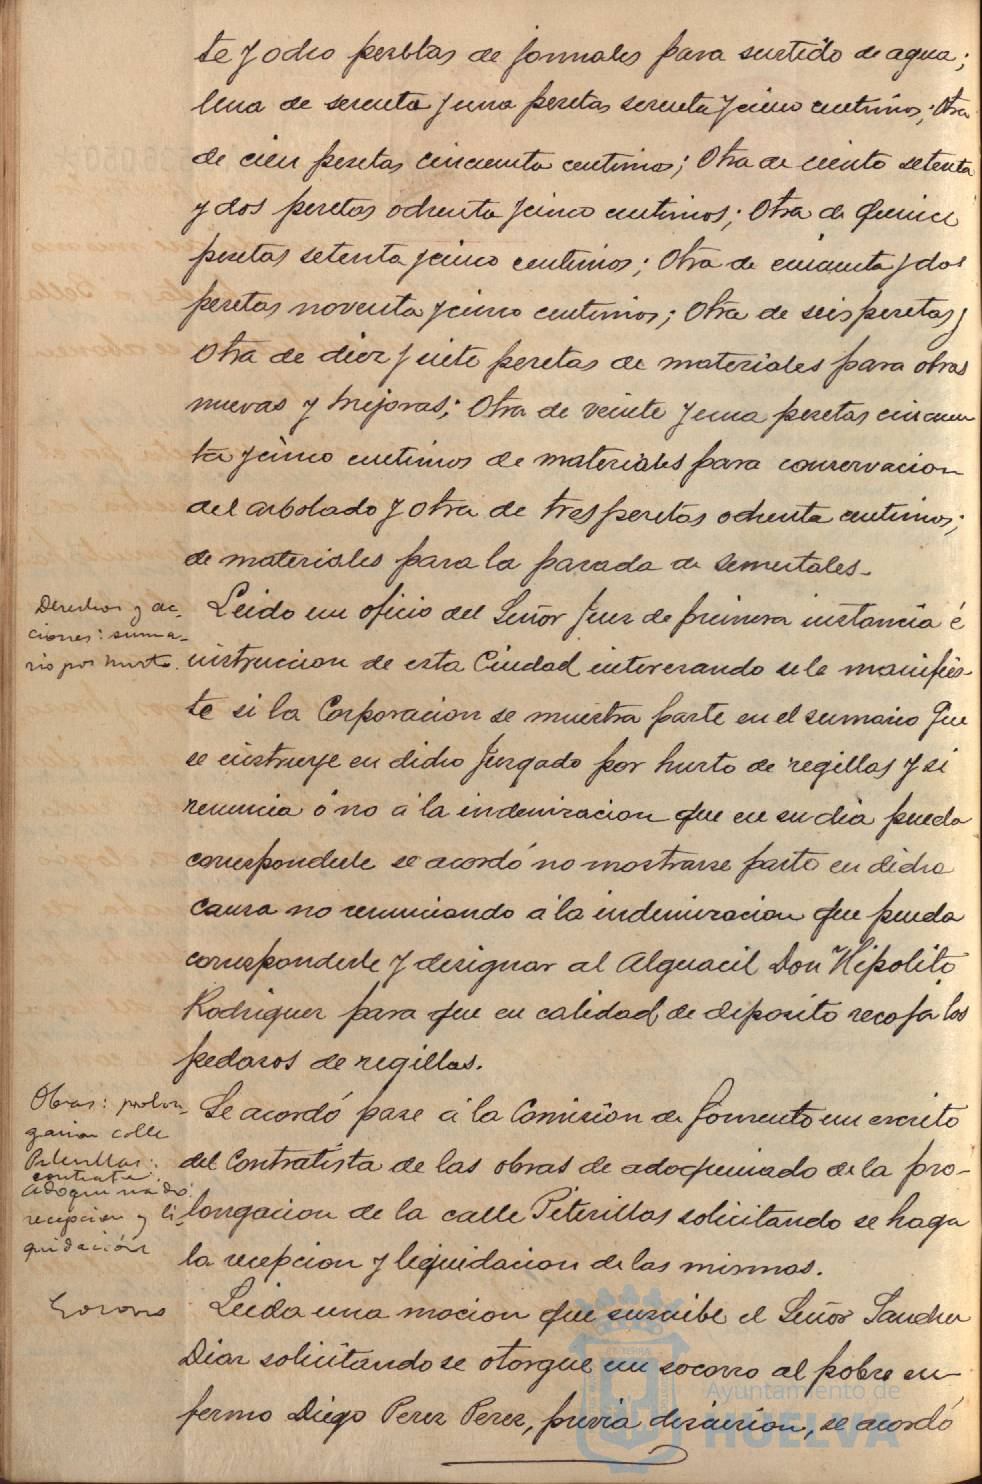 te y ocho pesetas de jornales para surtido de agua;
Una de sesenta y una pesetas sesenta y cinco centimos; Otra
de cien pesetas cincuenta centimos; Otra de ciento setenta
y dos pesetas ochenta y cinco centimos; Otra de quince
pesetas setenta y cinco centimos; Otra de cincuenta y dos
pesetas noventa y cinco centimos; Otra de seis pesetas y
Otra de diez y siete pesetas de materiales para obras
nuevas y mejoras; Otra de veinte y una pesetas cincuen
ta y cinco centimos de materiales para conservacion
del arbolado y otra de tres pesetas ochenta centimos;
de materiales para la parada de sementales.-
Derechos y ac-
ciones: suma-
rio por hurto.
Leido un oficio del Señor Juez de primera instancia é
instruccion de esta Ciudad interesando se le manifies-
te si la Corporacion se muestra parte en el sumario que
se instruye en dicho Juzgado por hurto de regillas y si
renuncia ó no á la indemnizacion que en su dia pueda
corresponderle se acordó no mostrarse parte en dicha
causa no renunciando á la indemnizacion que pueda
corresponderle y designar al Alguacil Don Hipolito
Rodriguez para que en calidad de deposito recoja los
pedazos de regillas.
Obras: prolon-
gacion calle
Puterillas:
contrata
adoquinado:
recepcion y li-
quidación
Se acordó pase á la Comision de Fomento un escrito
del Contratista de las obras de adoquinado de la pro-
longacion de la calle Peterillas solicitando se haga
la recepcion y liquidacion de las mismas.
Socorro
Leida una mocion que suscribe el Señor Sanchez
Diaz solicitando se otorgue un socorro al pobre en-
fermo Diego Perez Perez, previa discusion, se acordó
Ayuntamiento de
HUELVA